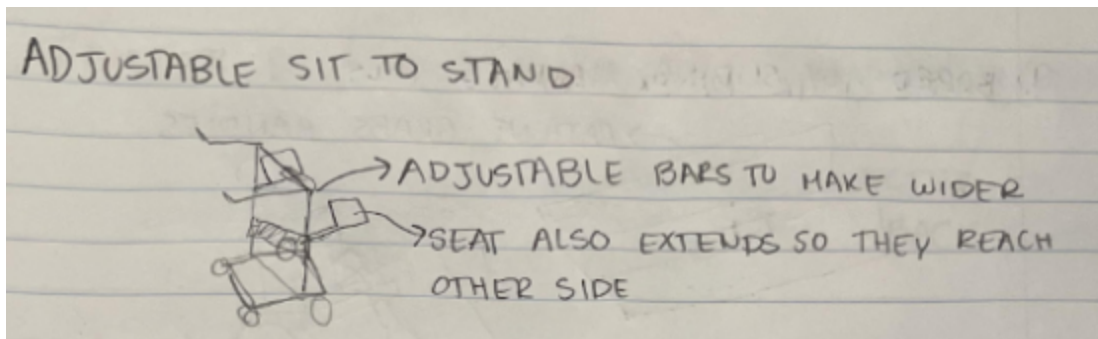 ADJUSTABLE SIT TO STAND
ADJUSTABLE BARS TO MAKE WIDER
SEAT ALSO EXTENDS SO THEY REACH
OTHER SIDE